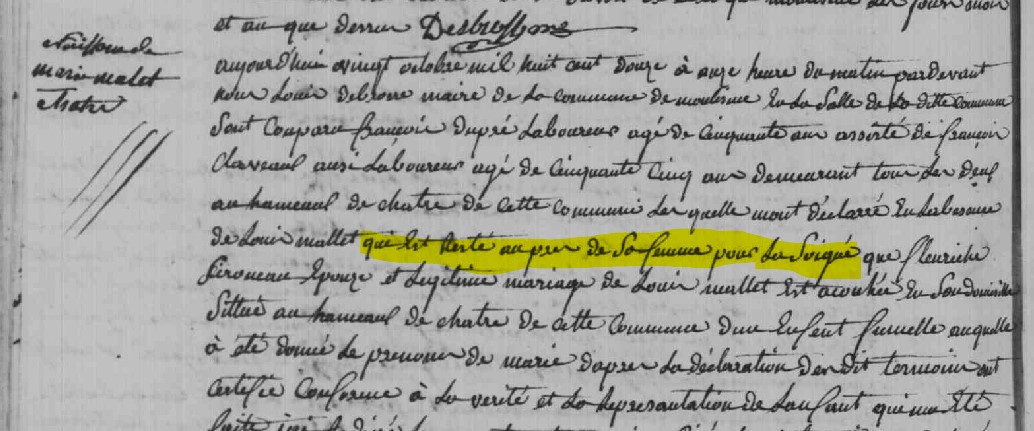 et au que dessus Desbrosses
Naissance de
marie malet
Chatre
aujourd'huis vingt octobre mil huit cent douze à onze heure du matin pardevant
nous Louis debrosse maire de la commune de moulisme En La Salle de La ditte Commune
Sont Comparu françois dupré Laboureur agé de Cinquante ans assisté de françois
Claveaud ausi Laboureur agé de Cinquante Cinq ans demeurant tous Les deux
au hameaud de chatre de Cette Commune Les quelle mont déclarré En Labsence
de Louis mallet qui Est Resté au pres de Sa femme pour La Soigné que fleuriche
Epouze et Legitime mariage de Louis mallet Est acouchée En Son domicille
Sittué au hameaud de chatre de Cette Commune dun Enfent fumelle auquelle
à été donné Le prenom de marie daprés La déclaration des dit temoins ont
Certifié Conforme à La verité et La Representation de Lanfant qui ma Eté
faite